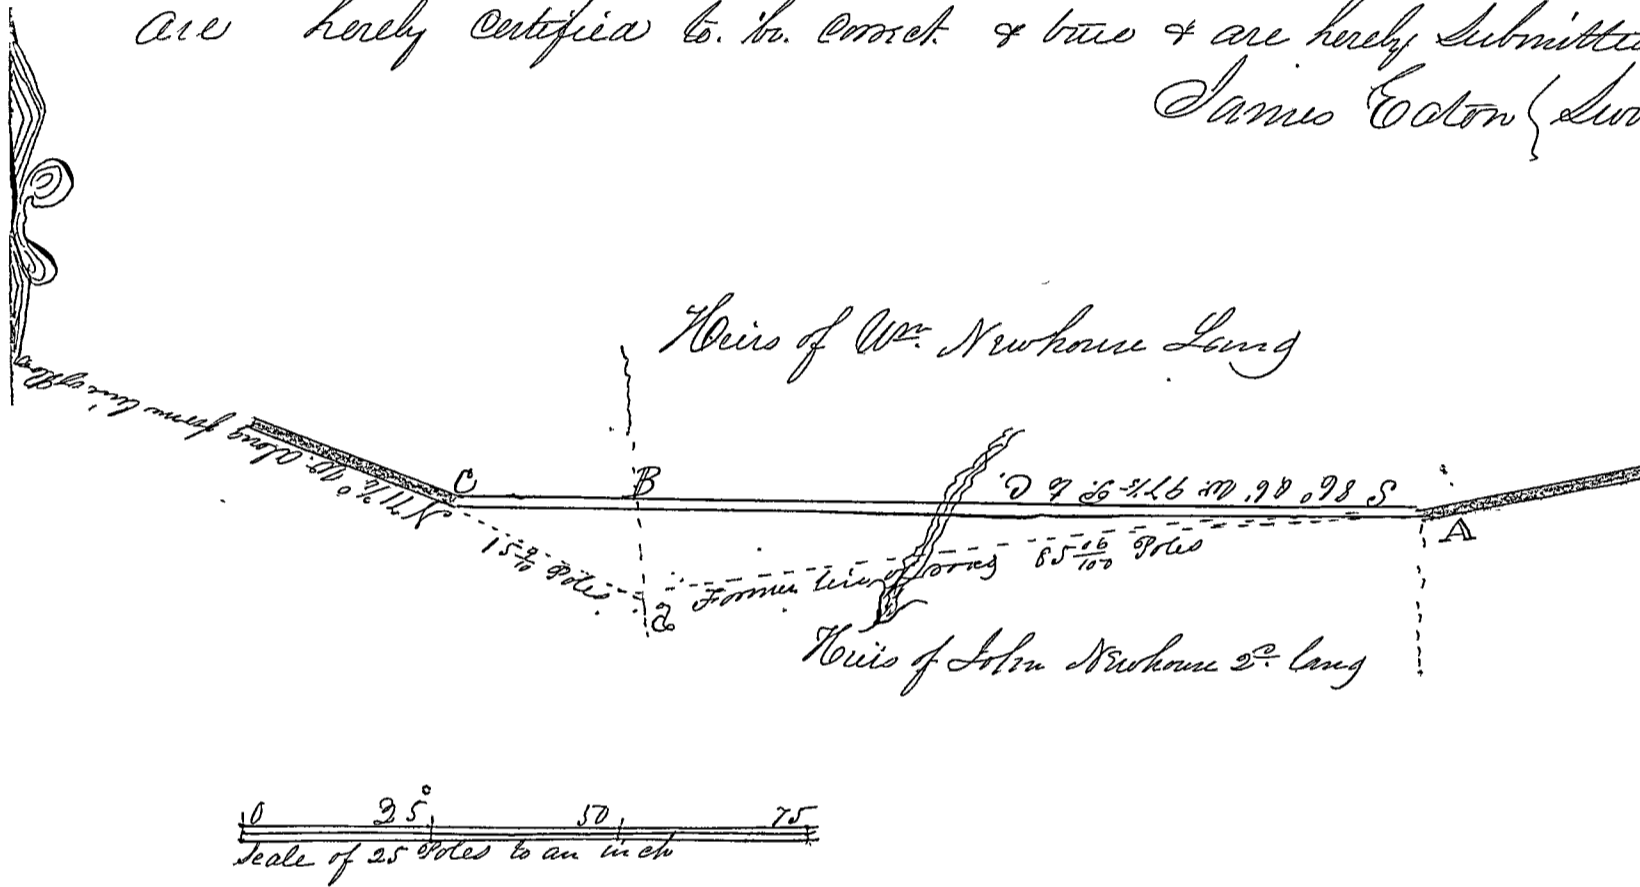 are hereby Certified to. be. Correct. & true & are hereby Submitted
James Eaton { Sur
Heirs of Wm. Newhouse Land
C
B
S 86° 26' W 97½ P. to C.
A
N 71½° W. along former line of Road
15 9/10 Poles
Former line of road 85 06/100 Poles
a
Heirs of John Newhouse 2d. land
0 25 50 75
Scale of 25 Poles to an inch